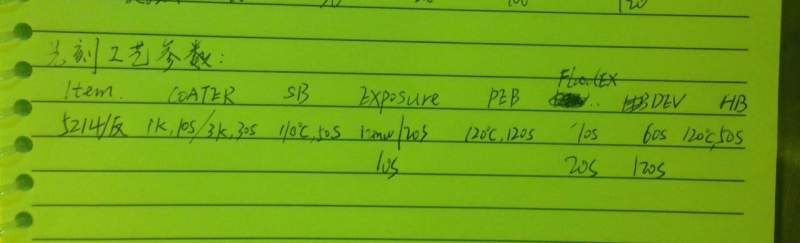 光刻工艺参数:
Item. COATER SB Exposure PEB Flood EX DEV HB
5214/反 1K,10S/3K,30S 110℃,50S /20S 120℃,120S 10S 60S 120℃,50S
10S 20S 120S